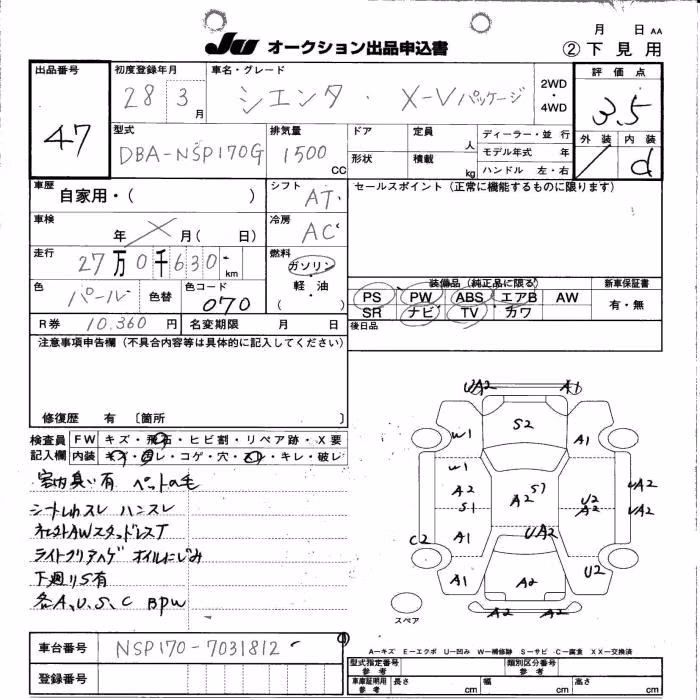 月 日 AA
JU オークション出品申込書 ② 下見用
出品番号 初度登録年月 車名・グレード 2WD・4WD 評価点
47 28 3月 シエンタ・X-Vパッケージ 3.5
型式 排気量 ドア 定員 人 ディーラー・並行 外装 内装
DBA-NSP170G 1500 CC 形状 積載 kg モデル年式 年 d
ハンドル 左・右
車歴 自家用・( ) シフト AT セールスポイント(正常に機能するものに限ります)
車検 年 月( 日) 冷房 AC
走行 27万0千630 km 燃料 ガソリン・軽・油 ( )
色 パール 色替 色コード 070
装備品(純正品に限る) 新車保証書
PS PW ABS エアB AW 有・無
SR ナビ TV カワ
R券 10,360円 名変期限 月 日 後日品
注意事項申告欄(不具合内容等は具体的に記入してください)
修復歴 有 〔箇所 〕
検査員 FW キズ・飛石・ヒビ割・リペア跡・X要
記入欄 内装 キズ・汚レ・コゲ・穴・スレ・キレ・破レ
室内臭い有 ペットの毛
シートしわスレ ハンスレ
ネストAWスタッドレスT
ライトクリアハゲ オイルにじみ
下廻りS有
各A、U、S、C BPW
UA2 A1
S2
W1 A1
W1
A2 S1 A2 S1 U2 A2 UA2 UA2
C2 A1 UA2
A1 A2 U2
A2 A2
スペア
車台番号 NSP170-7031812
登録番号
A-キズ E-エクボ U-凹み W-補修跡 S-サビ C-腐食 XX-交換済
型式指定番号 参考 類別区分番号 参考
車庫証明用 参考 長さ cm 幅 cm 高さ cm